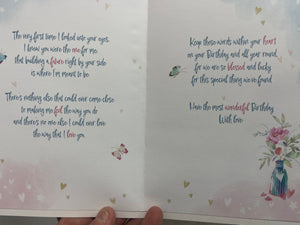 The very first time I looked into your eyes,
I knew you were the one for me,
that building a future right by your side
is where I'm meant to be.
There's nothing else that could ever come close
to making me feel the way you do
and there's no one else I could ever love
the way that I love you.
Keep these words within your heart
on your Birthday and all year round,
for we are so blessed and lucky
for this special thing we've found.
Have the most wonderful Birthday
With love